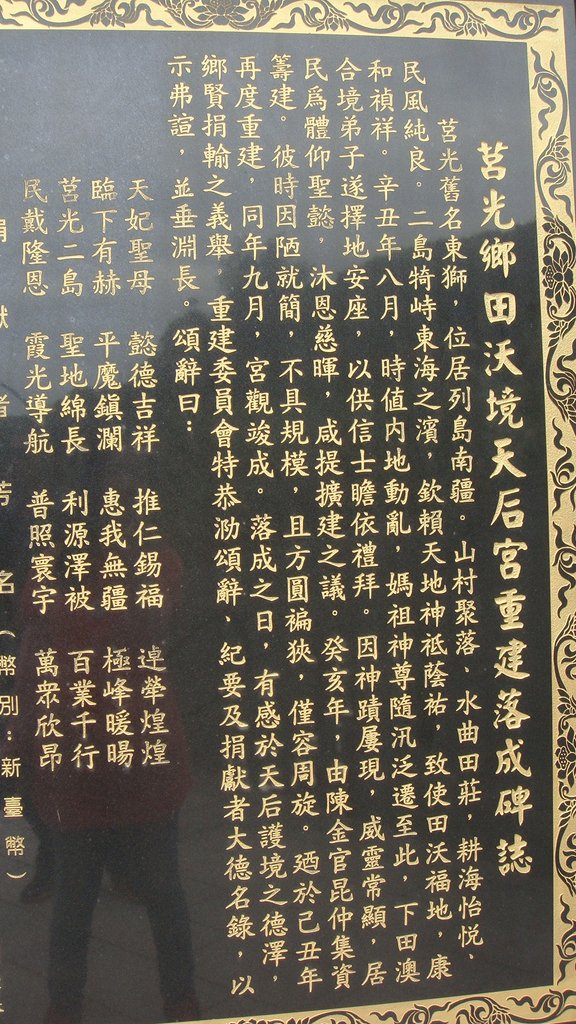 莒光鄉田沃境天后宮重建落成碑誌
莒光舊名東獅，位居列島南疆。山村聚落、水曲田莊，耕海怡悅、
民風純良。二島犄峙東海之濱，欽賴天地神祇蔭祐，致使田沃福地，康
和禎祥。辛丑年八月，時值內地動亂，媽祖神尊隨汛泛遷至此，下田澳
合境弟子遂擇地安座，以供信士瞻依禮拜。因神蹟屢現，威靈常顯，居
民為體仰聖懿，沐恩慈暉，咸提擴建之議。癸亥年，由陳金官昆仲集資
籌建。彼時因陋就簡，不具規模，且方圓褊狹，僅容周旋。迺於己丑年
再度重建，同年九月，宮觀竣成。落成之日，有感於天后護境之德澤，
鄉賢捐輸之義舉，重建委員會特恭泐頌辭、紀要及捐獻者大德名錄，以
示弗諠，並垂淵長。頌辭曰：
天妃聖母　懿德吉祥　推仁錫福　連犖煌煌
臨下有赫　平魔鎮瀾　惠我無疆　極峰暖暘
莒光二島　聖地綿長　利源澤被　百業千行
民戴隆恩　霞光導航　普照寰宇　萬眾欣昂
捐獻者芳名（幣別：新臺幣）